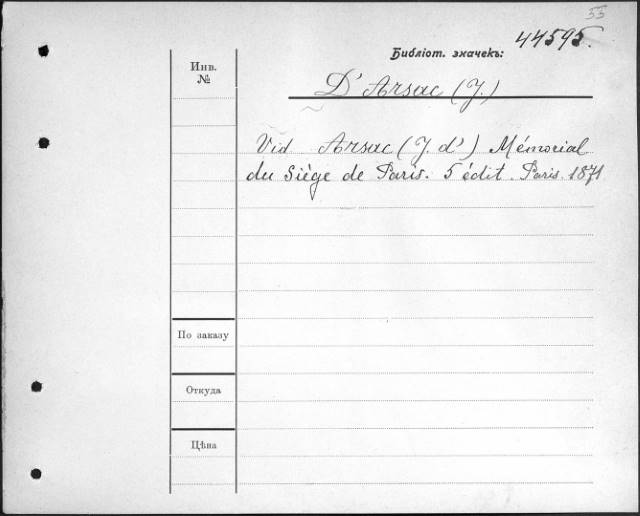 55
Библіот. значекъ: 44595.
Инв.
№
D'Arsac (J.)
Vid Arsac (J. d') Mémorial
du Siège de Paris. 5 édit. Paris. 1871
По заказу
Откуда
Цѣна